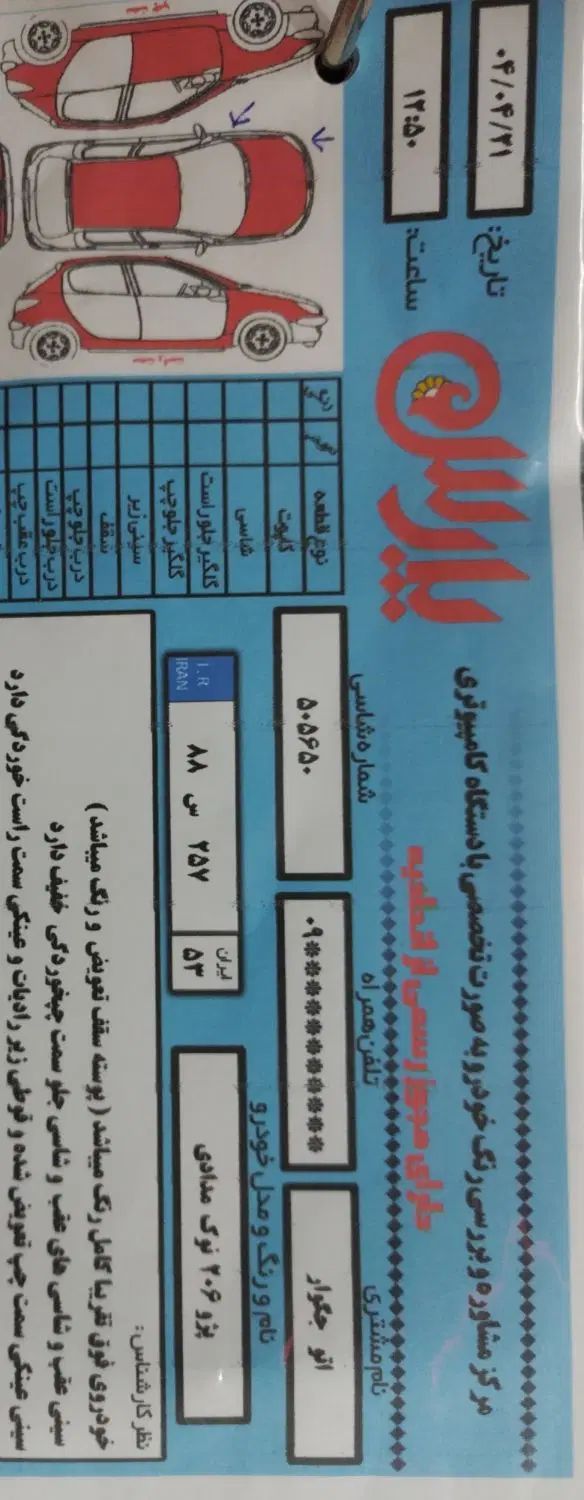 پارس
مرکز مشاوره و بررسی رنگ خودرو به صورت تخصصی با دستگاه کامپیوتری
دارای مجوز رسمی از اتحادیه
تاریخ: ۰۴/۰۴/۲۱
ساعت: ۱۲:۵۰
نام مشتری
اتو جگوار
تلفن همراه
۰۹*********
شماره شاسی
۵۰۵۶۵۰
نام و رنگ و مدل خودرو
پژو ۲۰۶ نوک مدادی
I.R
IRAN
۸۸ س ۲۵۷
ایران
۵۳
نوع قطعه
کاپوت
شاسی
گلگیر جلو راست
گلگیر جلو چپ
سینی زیر
سقف
درب جلو چپ
درب جلو راست
درب عقب چپ
نظر کارشناس:
خودروی فوق تقریبا کامل رنگ میباشد ( پوسته سقف تعویض و رنگ میباشد )
سینی عقب و شاسی های عقب و شاسی جلو سمت چپخوردگی خفیف دارد
سینی عینکی سمت چپ تعویض شده و قوطی زیر رادیات و عینکی سمت راست خوردگی دارد